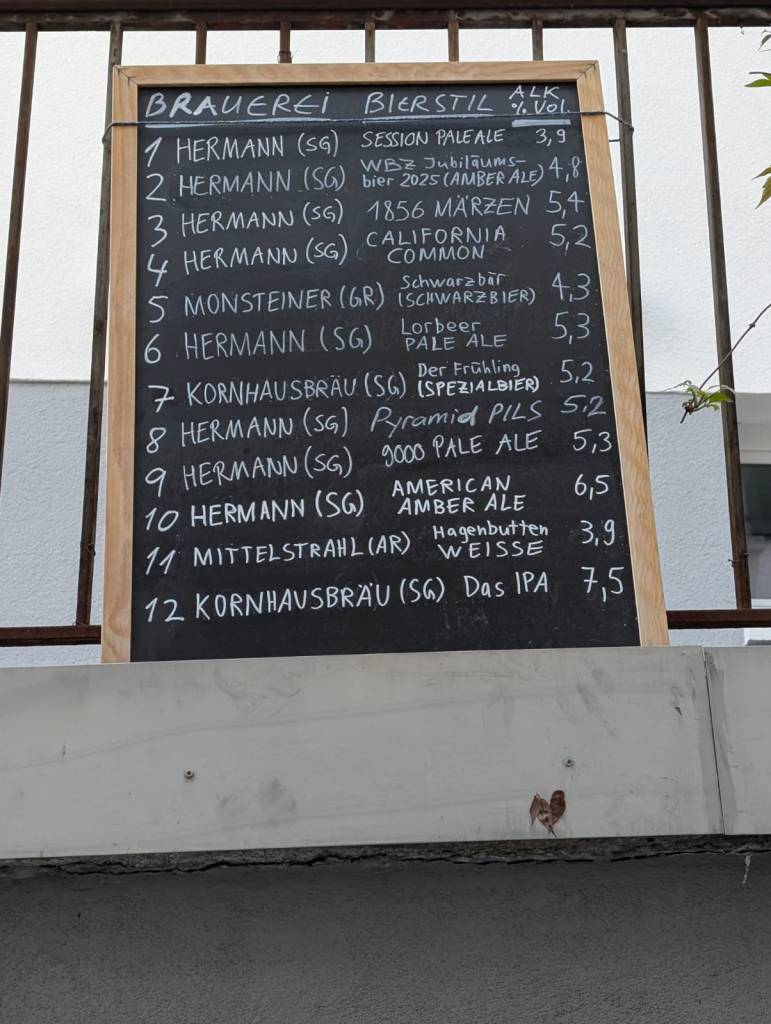 BRAUEREI BIERSTIL ALK % VOL.
1 HERMANN (SG) SESSION PALE ALE 3,9
2 HERMANN (SG) WBZ Jubiläums-
bier 2025 (AMBER ALE) 4,8
3 HERMANN (SG) 1856 MÄRZEN 5,4
4 HERMANN (SG) CALIFORNIA
COMMON 5,2
5 MONSTEINER (GR) Schwarzbär
(SCHWARZBIER) 4,3
6 HERMANN (SG) Lorbeer
PALE ALE 5,3
7 KORNHAUSBRÄU (SG) Der Frühling
(SPEZIALBIER) 5,2
8 HERMANN (SG) Pyramid PILS 5,2
9 HERMANN (SG) 9000 PALE ALE 5,3
10 HERMANN (SG) AMERICAN
AMBER ALE 6,5
11 MITTELSTRAHL (AR) Hagenbutten
WEISSE 3,9
12 KORNHAUSBRÄU (SG) Das IPA 7,5